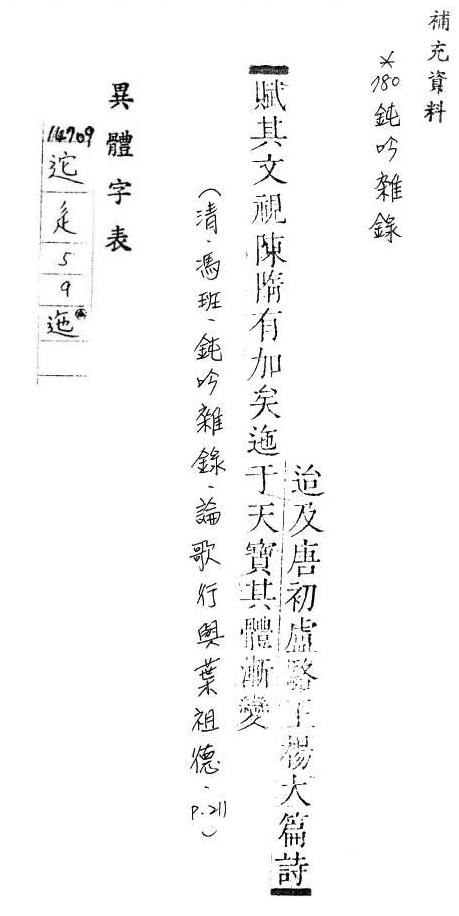 補充資料
*180鈍吟雜錄
迨及唐初盧駱王楊大篇詩
賦其文視陳隋有加矣迤于天寶其體漸變
（清．馮班．鈍吟雜錄．論歌行與葉祖德．P.211）
異體字表
14709
迱
辵
5
9
迤